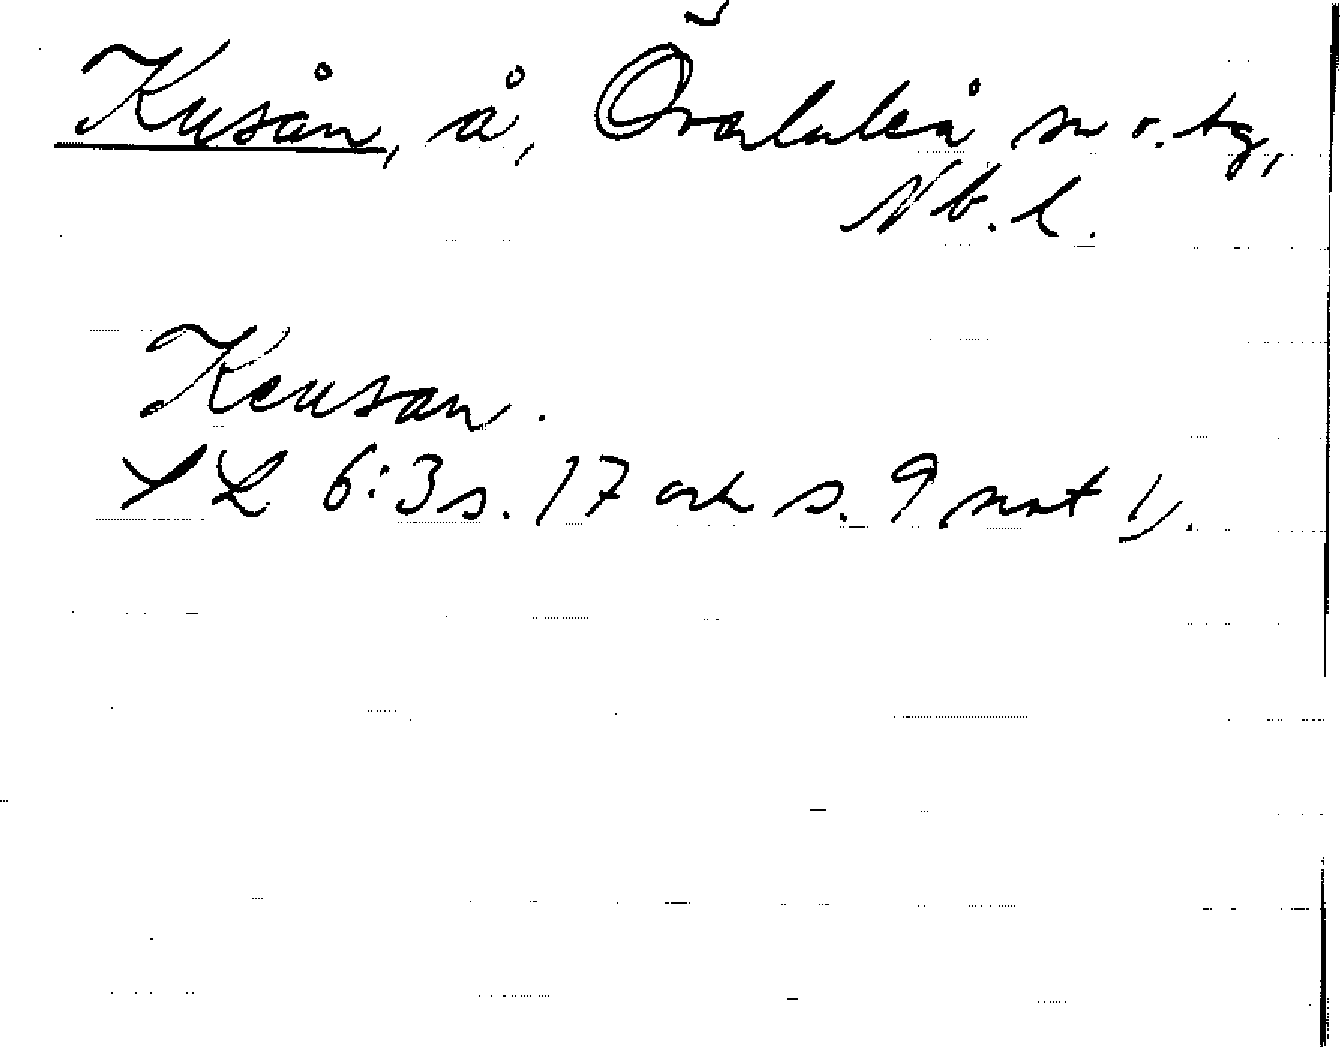 Kusån, å, Överluleå sn o. tg,
Nb. l.
Keusan.
SL 6:3 s. 17 och s. 9 not 1).